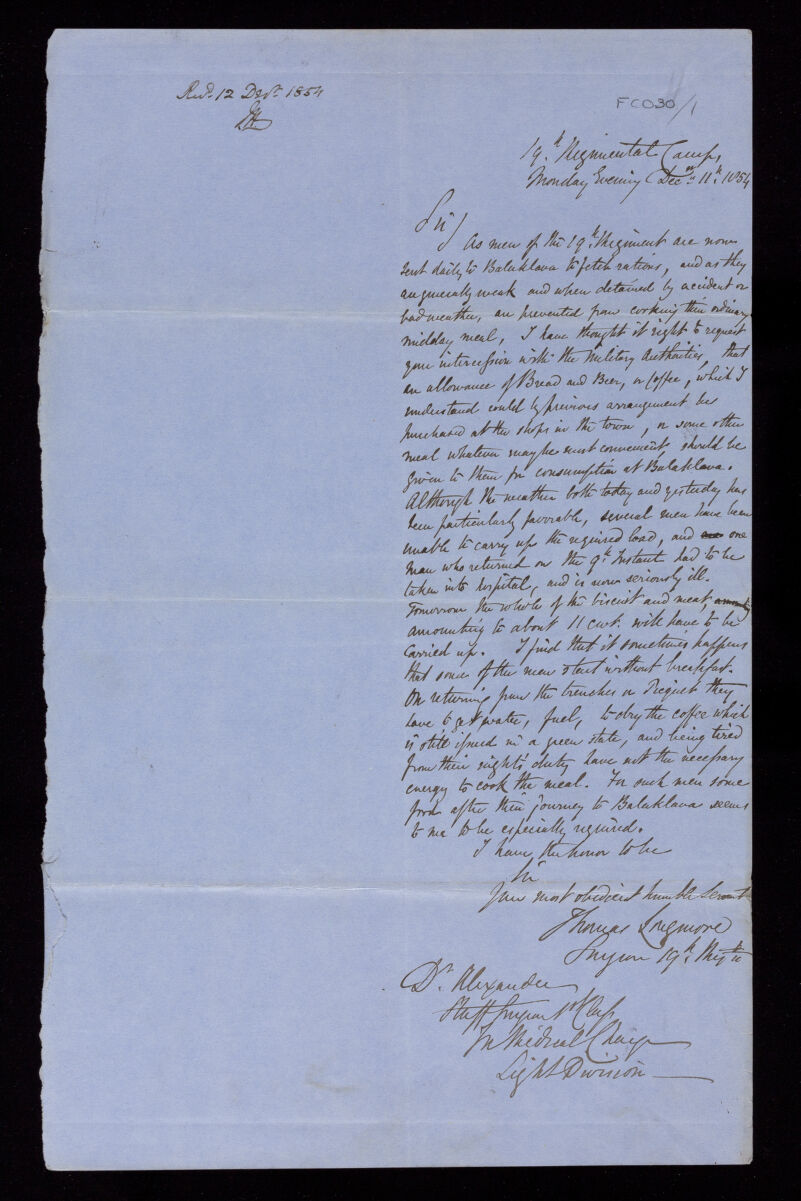 Recd. 12 Decr. 1854
FC030/1
19th Regimental Camp,
Monday Evening Decr. 11th. 1854
Sir/
As men of the 19th. Regiment are now
sent daily to Balaklava to fetch rations, and as they
are generally weak and when detained by accident or
bad weather, are prevented from cooking their ordinary
midday meal, I have thought it right to request
your intercession with the Military Authorities, that
an allowance of Bread and Beer, or Coffee, which I
understand could by previous arrangement be
purchased at the shops in the town, or some other
meal whatever may be most convenient, should be
given to them for consumption at Balaklava.
Although the weather both today and yesterday has
been particularly favorable, several men have been
unable to carry up the required load, and one
man who returned on the 9th Instant had to be
taken into hospital, and is now seriously ill.
Tomorrow the whole of the biscuit and meat,
amounting to about 11 cwt. will have to be
carried up. I find that it sometimes happens
that some of the men start without breakfast.
On returning from the trenches or Picquet they
have to get water, fuel, to dry the coffee which
is still issued in a green state, and being tired
from their night's duty have not the necessary
energy to cook the meal. For such men some
food after their journey to Balaklava seems
to me to be especially required.
I have the honor to be
Sir
Your most obedient humble Servant
Thomas Longmore
Surgeon 19th. Regt.
Dr. Alexander
Staff Surgeon 1st Class
In Medical Charge
Light Division